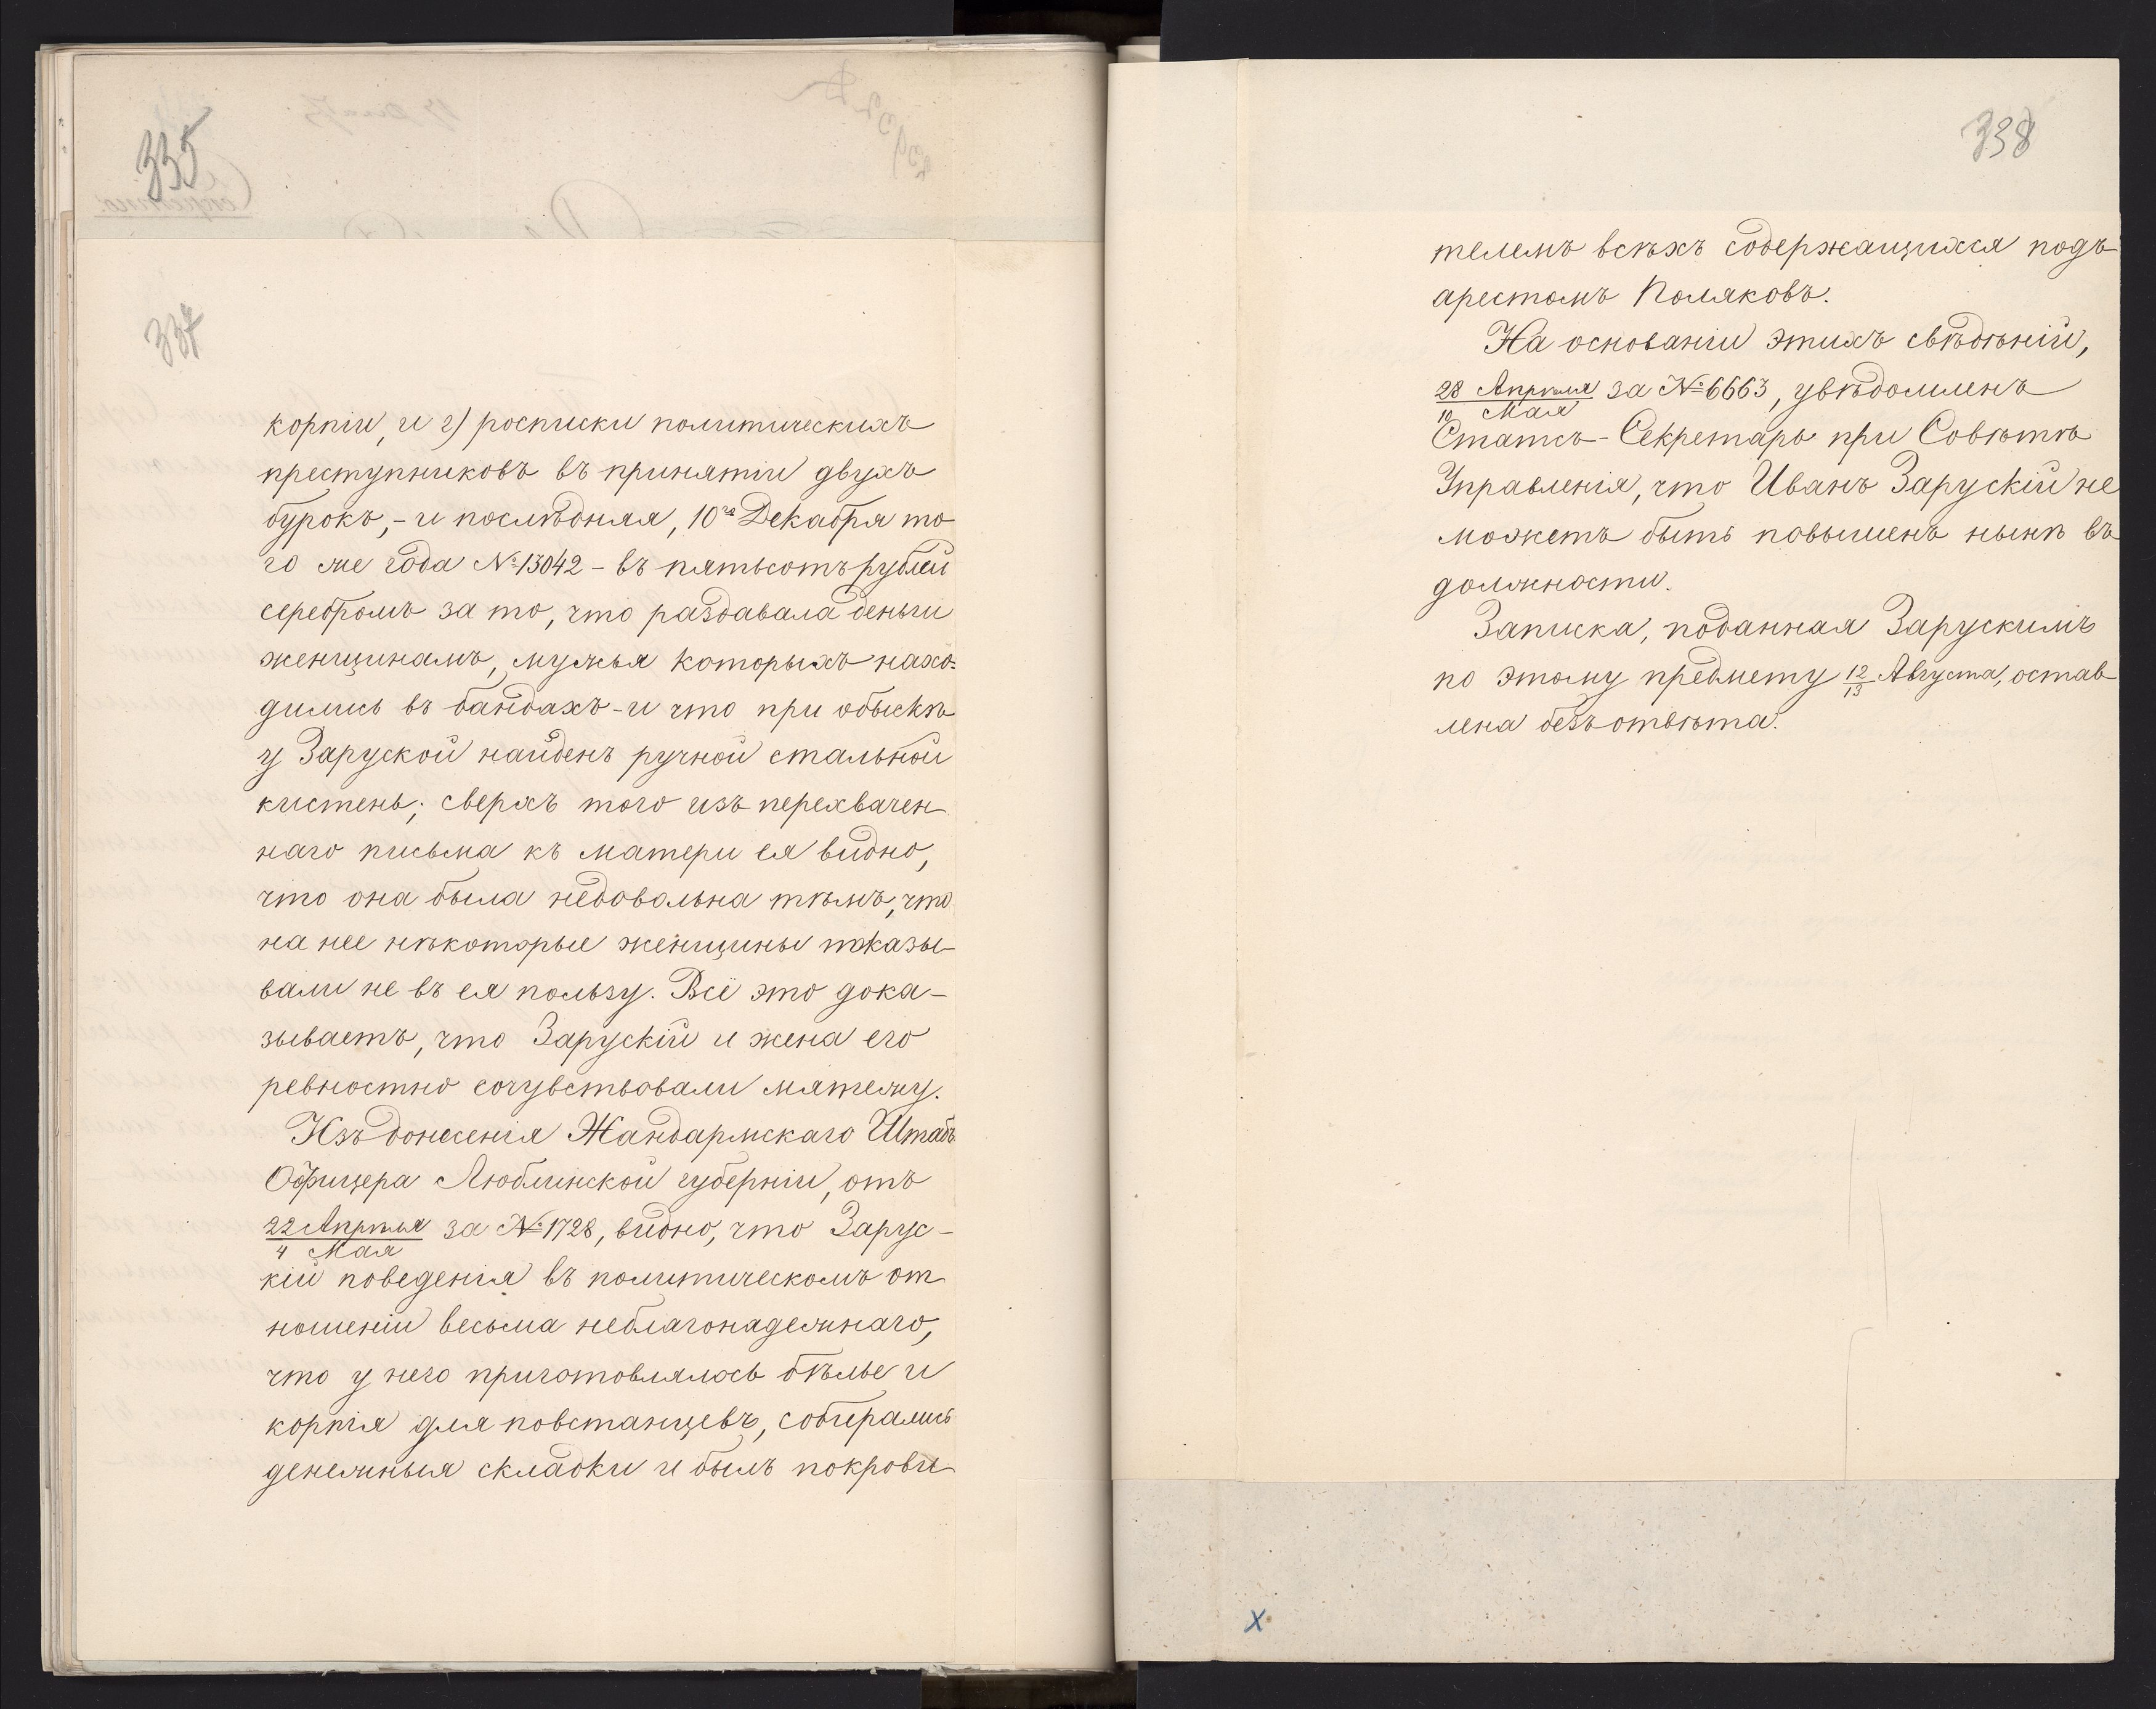 335
337
корпіи, и г) росписки политическихъ
преступниковъ въ принятіи двухъ
бурокъ,- и послѣдняя, 10го Декабря то
го же года № 13042 - въ пятьсотъ рублей
серебромъ за то, что раздавала деньги
женщинамъ, мужья которыхъ нахо=
дились въ бандахъ - и что при обыскѣ
у Заруской найденъ ручной стальной
кистень; сверхъ того изъ перехвачен
наго письма къ матери ея видно,
что она была недовольна тѣмъ, что
на нее нѣкоторые женщины показы-
вали не въ ея пользу. Всё это дока-
зываетъ, что Зарускій и жена его
ревностно сочувствовали мятежу.
Изъ донесенія Жандармскаго Штабъ
Офицера Люблинской губерніи, отъ
22 Апрѣля за № 1728, видно, что Зарус-
4 Мая
кій поведенія въ политическомъ от
ношеніи весьма неблагонадежнаго,
что у него приготовлялось бѣлье и
корпія для повстанцевъ, собирались
денежныя складки и былъ покрови
338
телемъ всѣхъ содержащихся подъ
арестомъ Поляковъ.
На основаніи этихъ свѣдѣній,
28 Апрѣля за № 6663, увѣдомленъ
10 Мая
Статсъ-Секретарь при Совѣтѣ
Управленія, что Иванъ Зарускій не
можетъ быть повышенъ нынѣ въ
должности.
Записка, поданная Зарускимъ
по этому предмету 12/13 Августа, остав
лена безъ отвѣта.
х